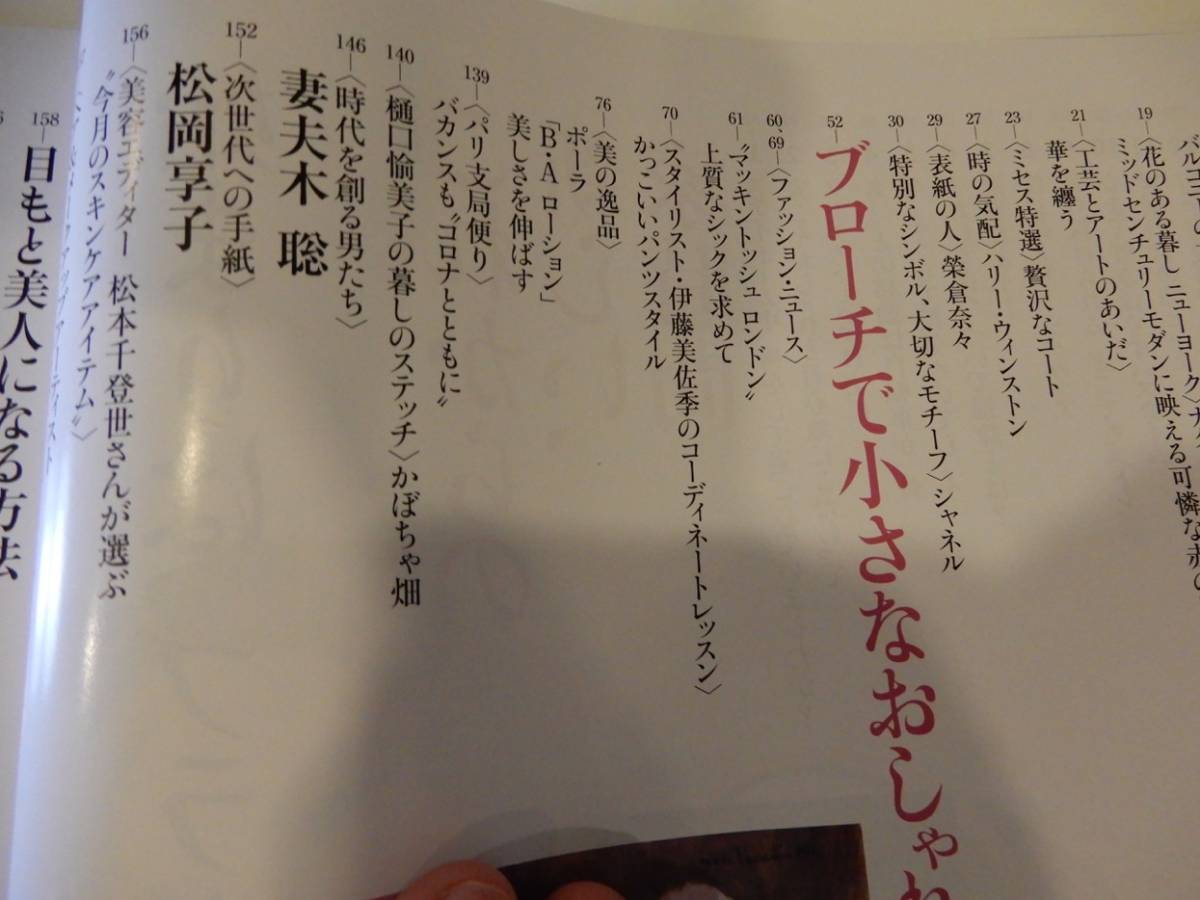 バルコニーの
19─〈花のある暮し ニューヨーク〉
ミッドセンチュリーモダンに映える可憐な赤
21─〈工芸とアートのあいだ〉
華を纏う
23─〈ミセス特選〉贅沢なコート
27─〈時の気配〉ハリー・ウィンストン
29─〈表紙の人〉榮倉奈々
30─〈特別なシンボル、大切なモチーフ〉シャネル
52─ブローチで小さなおしゃれ
60、69─〈ファッション・ニュース〉
61─〝マッキントッシュ ロンドン〟
上質なシックを求めて
70─〈スタイリスト・伊藤美佐季のコーディネートレッスン〉
かっこいいパンツスタイル
76─〈美の逸品〉
ポーラ
「B・A ローション」
美しさを伸ばす
139─〈パリ支局便り〉
バカンスも〝コロナとともに〟
140─〈樋口愉美子の暮しのステッチ〉かぼちゃ畑
146─〈時代を創る男たち〉
妻夫木 聡
152─〈次世代への手紙〉
松岡享子
156─〈美容エディター 松本千登世さんが選ぶ
〝今月のスキンケアアイテム〟〉
158─目もと美人になる方法